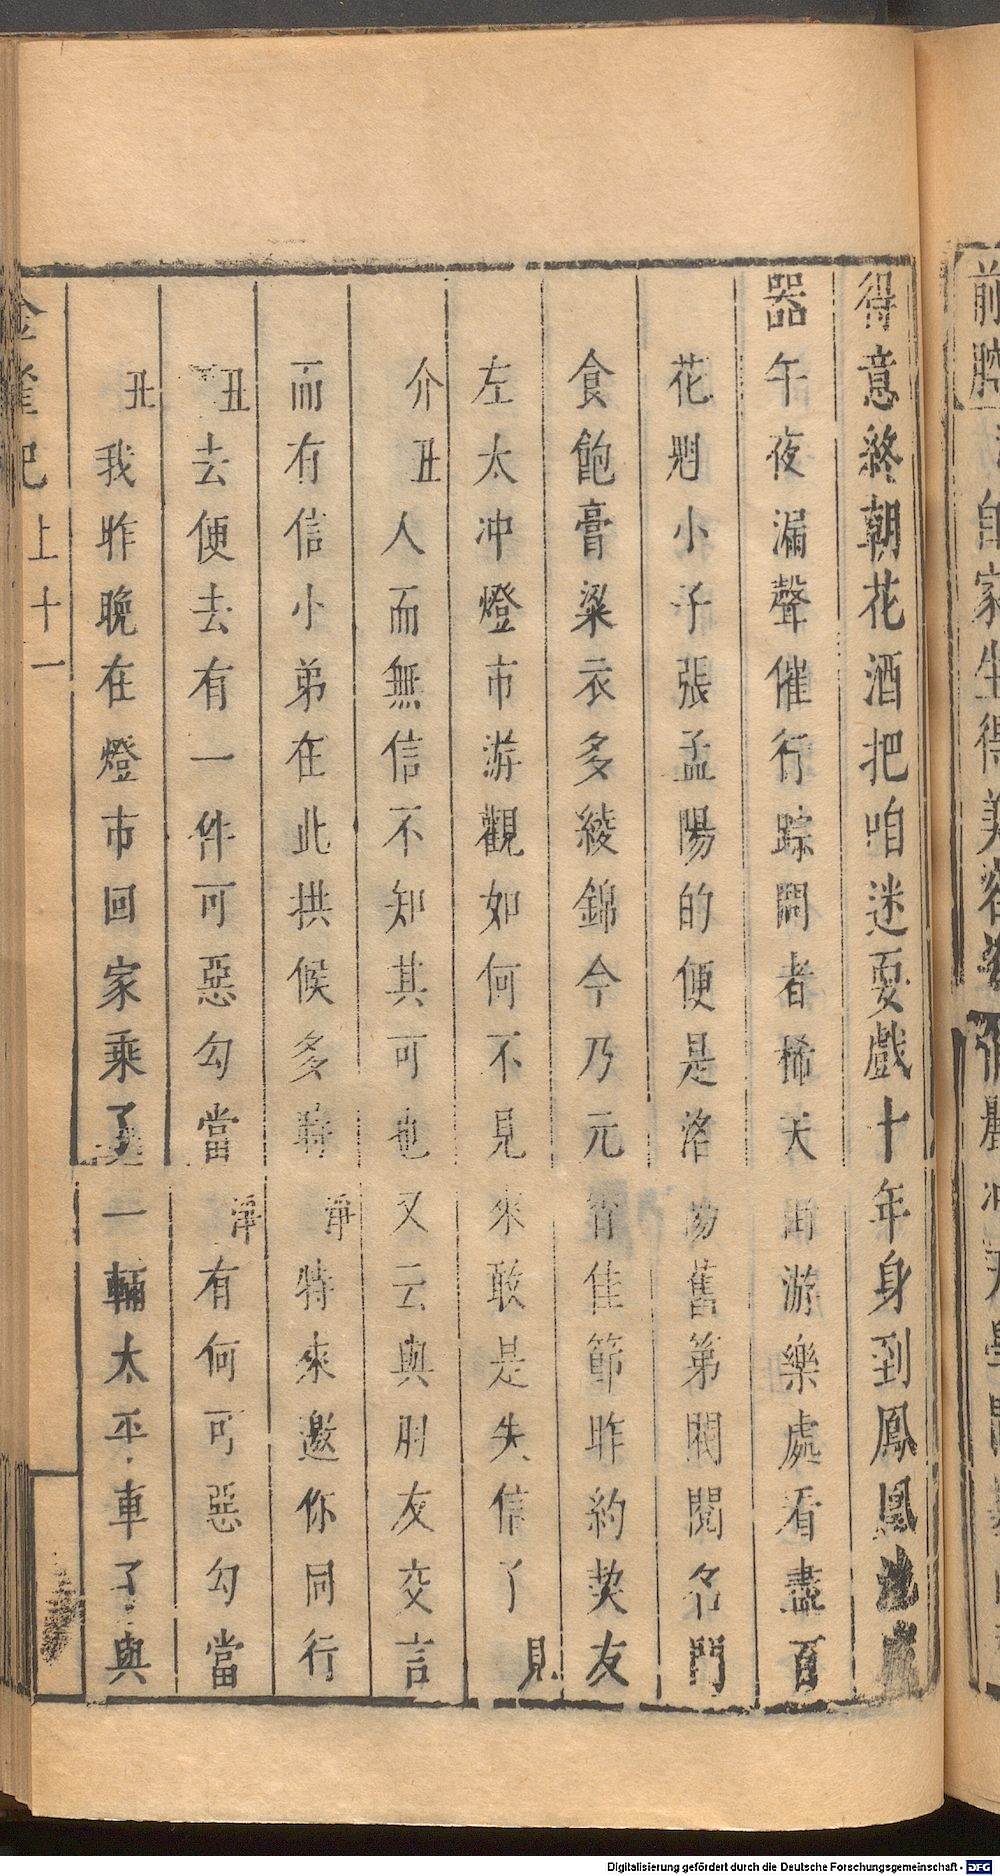 前腔
自家生得美容姿
得意終朝花酒把咱迷耍戲十年身到鳳凰池
器午夜漏聲催行踪問者稀天街游樂處看盡百
花魁小子張孟陽的便是洛陽舊第閥閱名門
食飽膏粱衣多綾錦今乃元宵佳節昨約契友
左太冲燈市游觀如何不見來敢是失信了見
介丑人而無信不知其可也又云與朋友交言
而有信小弟在此拱候多時淨特來邀你同行
丑去便去有一件可惡勾當淨有何可惡勾當
丑我昨晚在燈市回家乘了一輛太平車子與
金雀記 上 十一
Digitalisierung gefördert durch die Deutsche Forschungsgemeinschaft - DFG